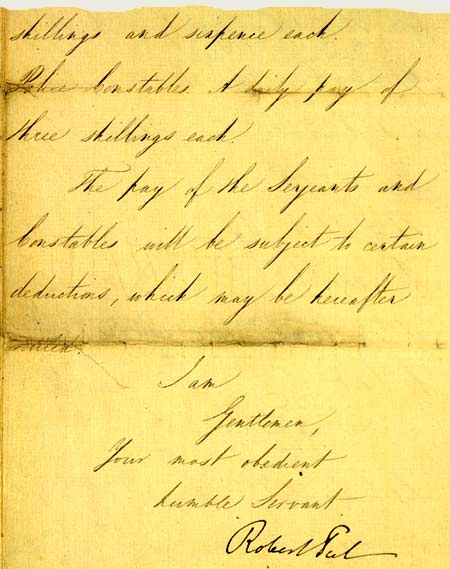 shillings and sixpence each.
Police Constables. A daily pay of
three shillings each.
The pay of the Serjeants and
Constables will be subject to certain
deductions, which may be hereafter
settled.
I am
Gentlemen,
Your most obedient
humble Servant
Robert Peel